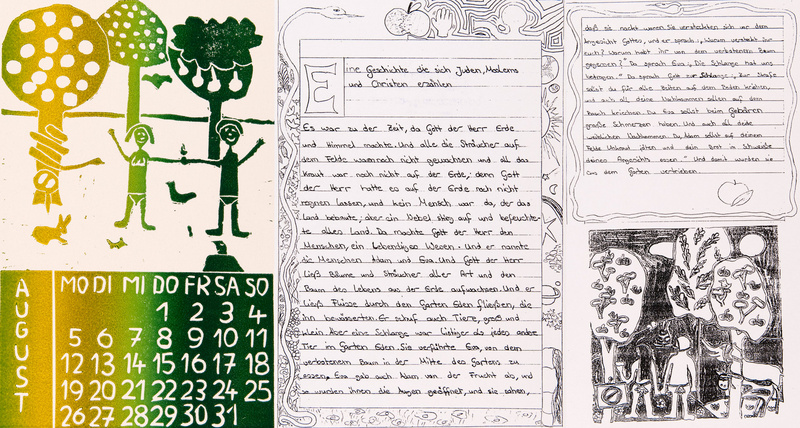 AUGUST
MO DI MI DO FR SA SO
1 2 3 4
5 6 7 8 9 10 11
12 13 14 15 16 17 18
19 20 21 22 23 24 25
26 27 28 29 30 31
Eine Geschichte die sich Juden, Moslems
und Christen erzählen
Es war zu der Zeit, da Gott der Herr Erde
und Himmel machte. Und alle die Sträucher auf
dem Felde waren noch nicht gewachsen und all das
Kraut war noch nicht auf der Erde; denn Gott
der Herr hatte es auf der Erde noch nicht
regnen lassen, und kein Mensch war da, der das
Land bebaute; aber ein Nebel stieg auf und befeuchte-
te alles Land. Da machte Gott der Herr den
Menschen, ein Lebendiges Wesen. Und er nannte
die Menschen Adam und Eva. Und Gott der Herr
ließ Bäume und Sträucher aller Art und den
Baum des Lebens aus der Erde aufwachsen. Und er
ließ Flüsse durch den Garten Eden fließen, die
ihn bewässerten. Er schuf auch Tiere, groß und
klein. Aber eine Schlange war listiger als jedes andre
Tier im Garten Eden. Sie verführte Eva, von dem
verbotenem Baum in der Mitte des Gartens zu
essen. Eva gab auch Adam von der Frucht ab, und
so wurden ihnen die Augen geöffnet, und sie sahen,
daß sie nackt waren. Sie versteckten sich vor dem
Angesicht Gottes, und er sprach: „Warum versteckt ihr
euch? Warum habt ihr von dem verbotenem Baum
gegessen?" Da sprach Eva: „Die Schlange hat uns
betrogen." Da sprach Gott zur Schlange: „Zur Strafe
sollst du für alle Zeiten auf dem Boden kriechen,
und auch all deine Nachkommen sollen auf dem
Bauch kriechen. Du Eva sollst beim Gebären
große Schmerzen haben. Und auch all deine
weiblichen Nachkommen. Du Adam sollst auf deinem
Felde Unkraut jäten und dein Brot im Schweiße
deines Angesichts essen." Und damit wurden sie
aus dem Garten vertrieben.